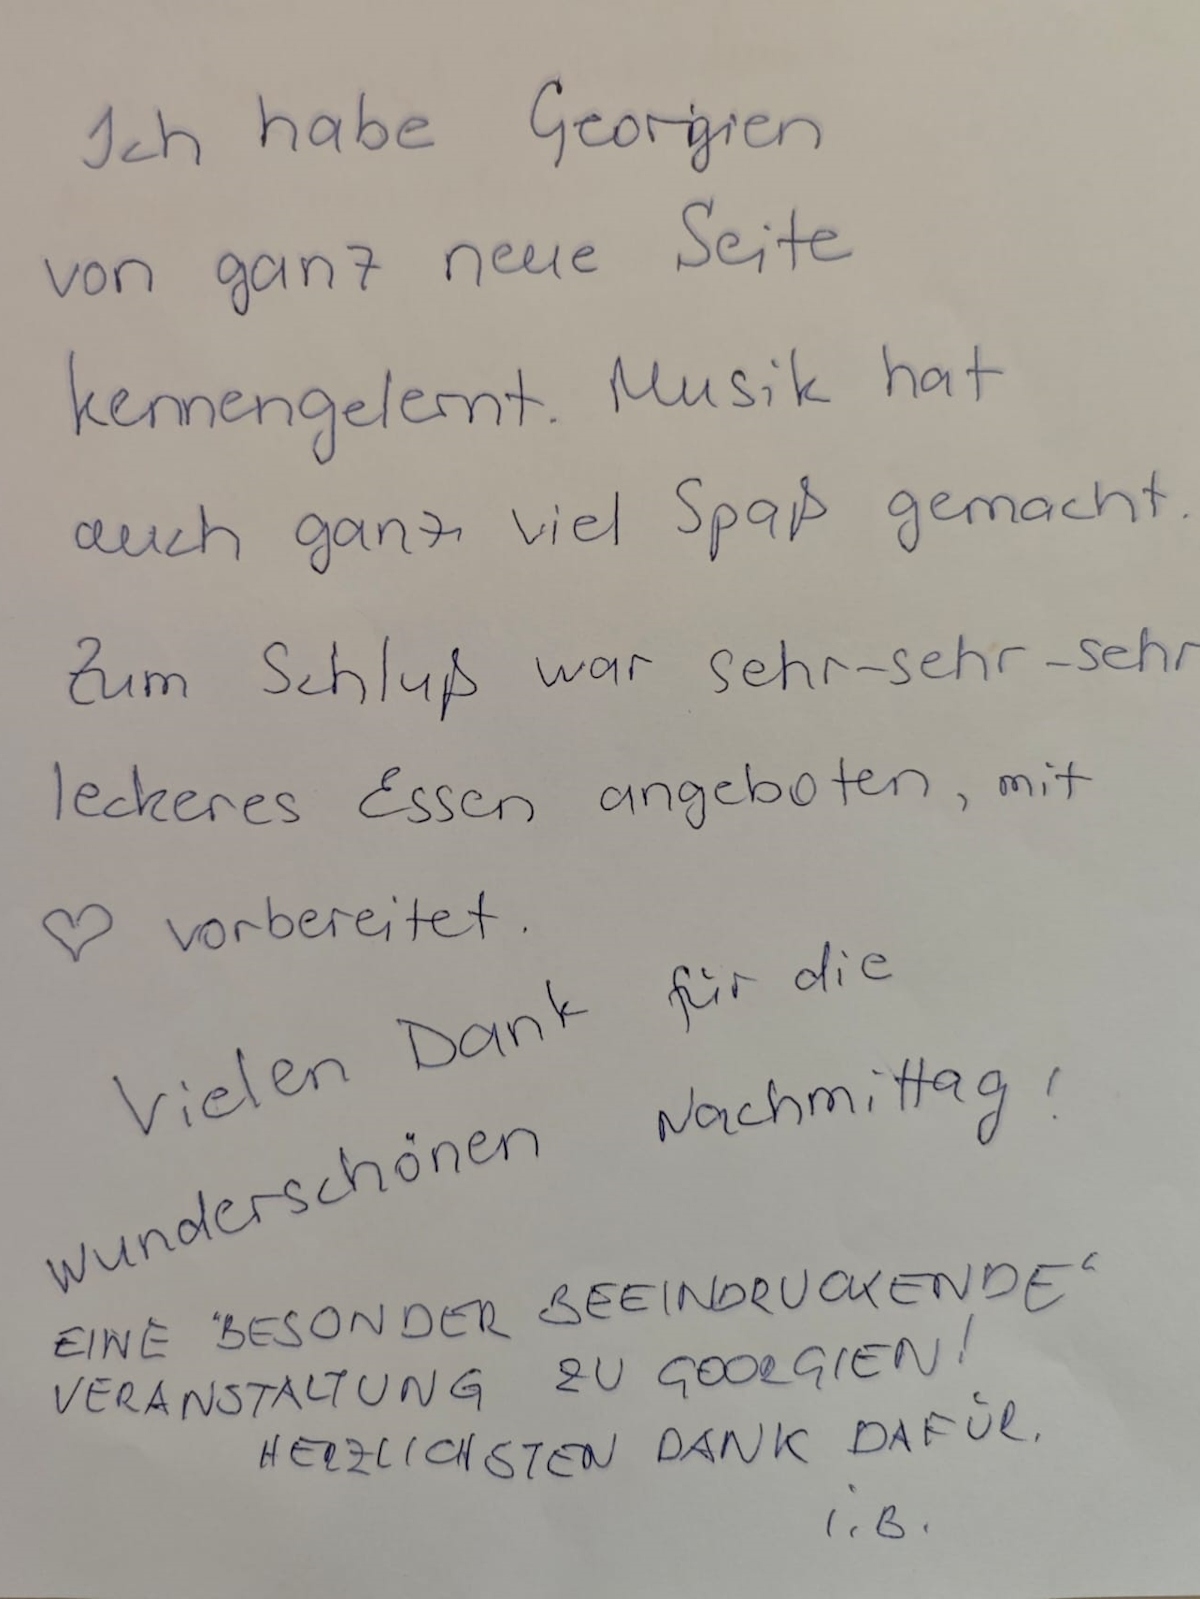 Ich habe Georgien
von ganz neue Seite
kennengelernt. Musik hat
auch ganz viel Spaß gemacht.
Zum Schluß war sehr-sehr-sehr
leckeres Essen angeboten, mit
♡ vorbereitet.
Vielen Dank für die
wunderschönen Nachmittag!
EINE "BESONDER BEEINDRUCKENDE"
VERANSTALTUNG ZU GOORGIEN!
HERZLICHSTEN DANK DAFÜR.
i.B.